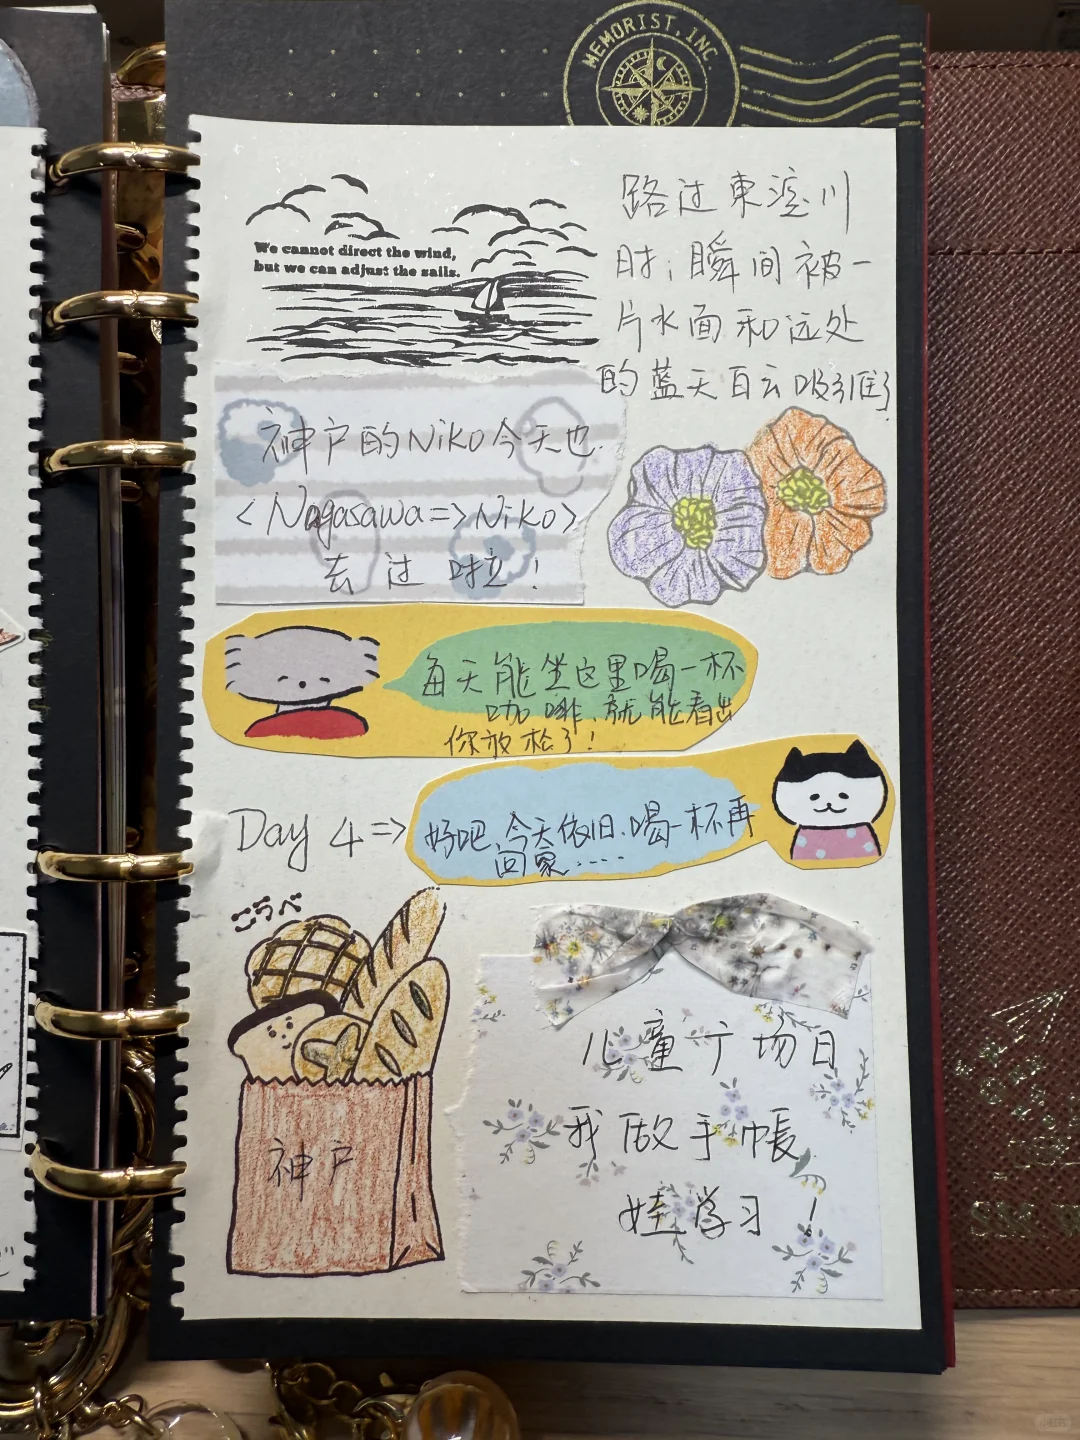 MEMORIST, INC.
We cannot direct the wind,
but we can adjust the sails.
路过東淀川
时，瞬间被一
片水面和远处
的蓝天白云吸引住了
神户的Niko今天也
<Nagasawa=>Niko>
去过啦！
每天能坐这里喝一杯
咖啡、就能看出
你放松了！
Day 4 =>
好吧,今天依旧、喝一杯再
回家……
こうべ
神户
儿童广场日
我做手帳
娃学习！